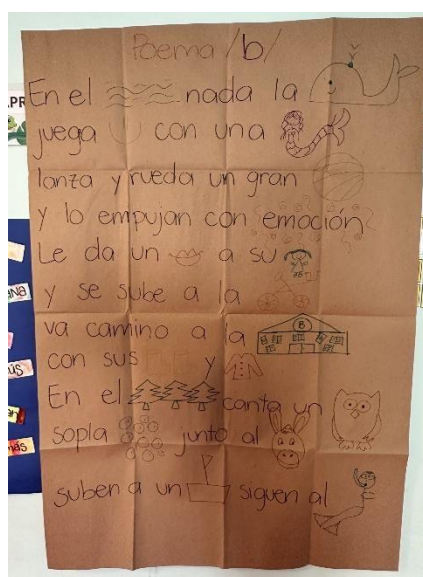 Poema /b/
En el nada la
juega con una
lanza y rueda un gran
y lo empujan con emoción
Le da un a su
y se sube a la
va camino a la B
con sus y
En el canta un
sopla junto al
suben a un siguen al